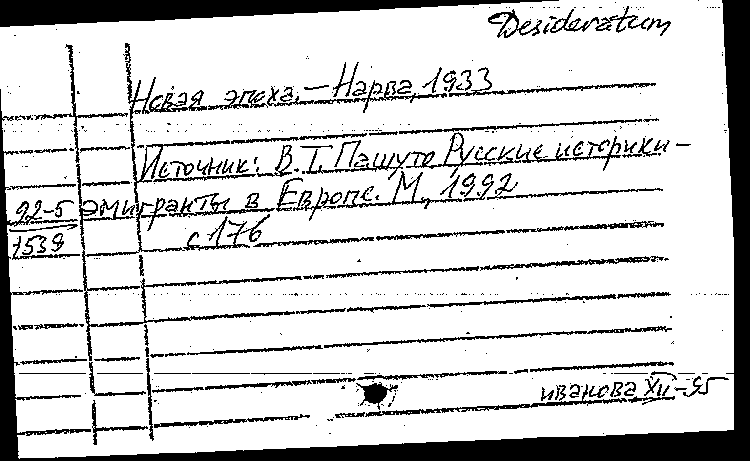 Desideratum
Новая эпоха. — Нарва, 1933
Источник: В.Т. Пашуто Русские историки-
92-5 эмигранты в Европе. М., 1992
1539 с 176
иванова XII-95